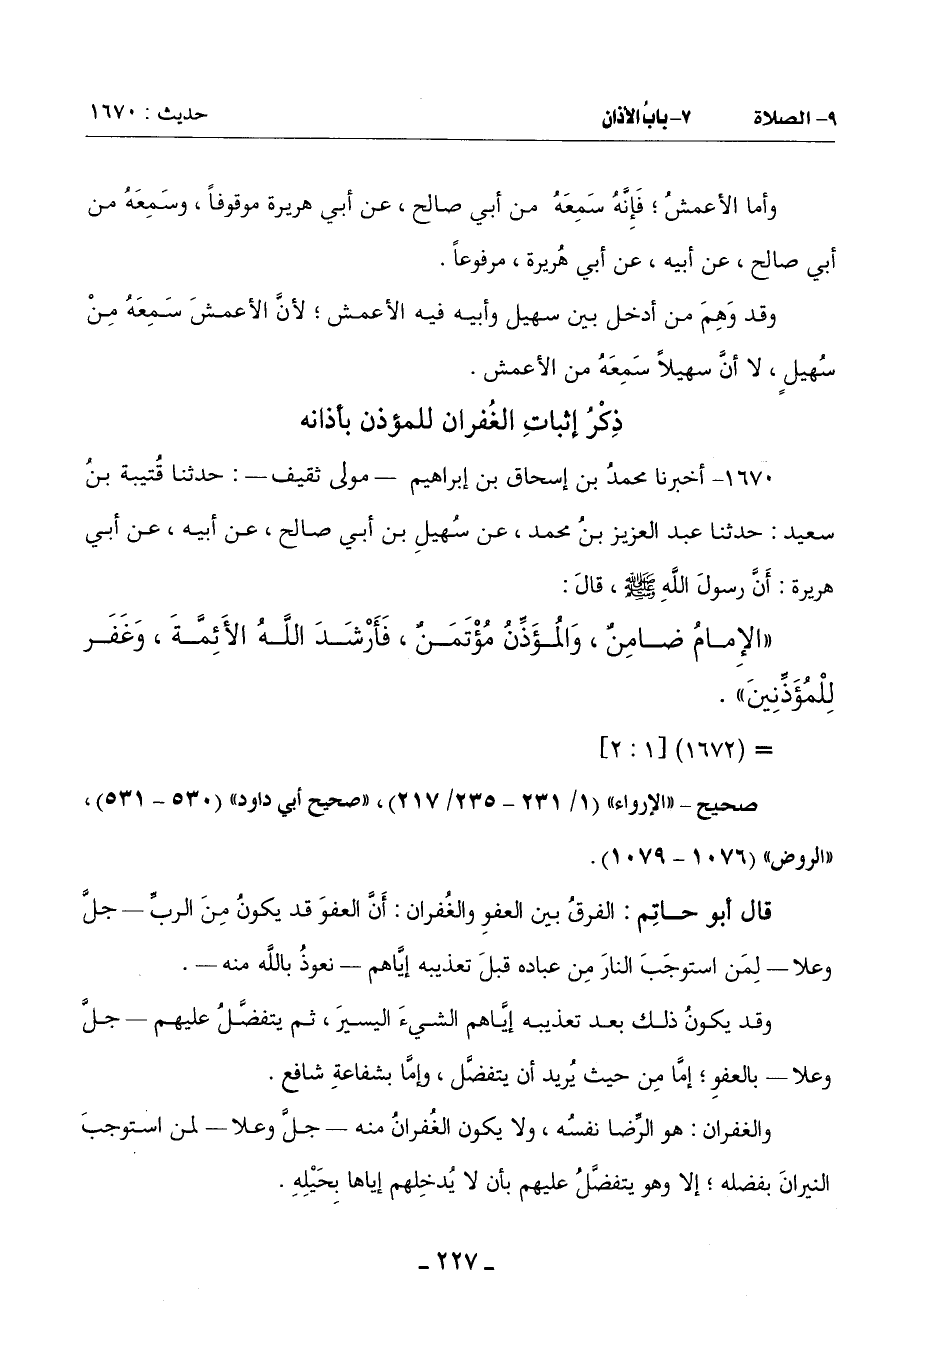 ٩- الصلاة ٧-بابُ الأذان حديث : ١٦٧٠
وأما الأعمشُ ؛ فَإنَّهُ سَمِعَهُ من أبي صالح ، عن أبي هريرة موقوفاً ، وسَمِعَهُ من
أبي صالح ، عن أبيه ، عن أبي هُريرة ، مرفوعاً .
وقد وَهِمَ من أدخل بين سهيل وأبيه فيه الأعمش ؛ لأنَّ الأعمشَ سَمِعَهُ مِنْ
سُهيلٍ ، لا أنَّ سهيلاً سَمِعَهُ من الأعمش .
ذِكْرُ إثباتِ الغُفران للمؤذن بأذانه
١٦٧٠- أخبرنا محمدُ بن إسحاق بن إبراهيم — مولى ثقيف — : حدثنا قُتيبة بنُ
سعيد : حدثنا عبد العزيز بنُ محمد ، عن سُهيلِ بن أبي صالح ، عن أبيه ، عن أبي
هريرة : أنَّ رسولَ اللَّهِ ﷺ ، قالَ :
«الإمامُ ضامِنٌ ، وَالمُؤَذِّنُ مُؤْتَمَنٌ ، فَأَرْشَدَ اللَّهُ الأَئِمَّةَ ، وَغَفَرَ
لِلْمُؤَذِّنِينَ» .
= (١٦٧٢) [١ : ٢]
صحيح - «الإرواء» (١/ ٢٣١ - ٢٣٥/ ٢١٧)، «صحيح أبي داود» (٥٣٠ - ٥٣١)،
«الروض» (١٠٧٦ - ١٠٧٩).
قال أبو حاتِم : الفرقُ بين العفوِ والغُفران : أنَّ العفوَ قد يكونُ مِنَ الربِّ — جلَّ
وعلا — لِمَن استوجَبَ النارَ مِن عباده قبلَ تعذيبه إيَّاهم — نعوذُ باللَّه منه — .
وقد يكونُ ذلك بعد تعذيبه إيَّاهم الشيءَ اليسيرَ ، ثم يتفضَّلُ عليهم — جلَّ
وعلا — بالعفوِ ؛ إمَّا مِن حيث يُريد أن يتفضَّل ، وإمَّا بشفاعةِ شافع .
والغفران : هو الرِّضا نفسُه ، ولا يكون الغُفرانُ منه — جلَّ وعلا — لمن استوجبَ
النيرانَ بفضله ؛ إلا وهو يتفضَّلُ عليهم بأن لا يُدخِلهم إياها بِحَيْلِهِ .
- ٢٢٧ -